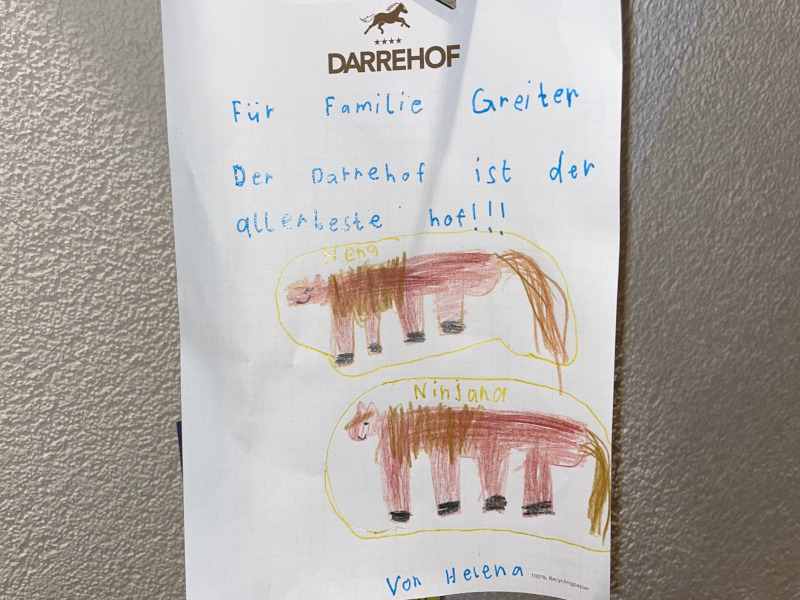 DARREHOF
Für Familie Greiter
Der Darrehof ist der
allerbeste hof!!!
Nena
Ninjana
Von Helena
100% Recyclingpapier